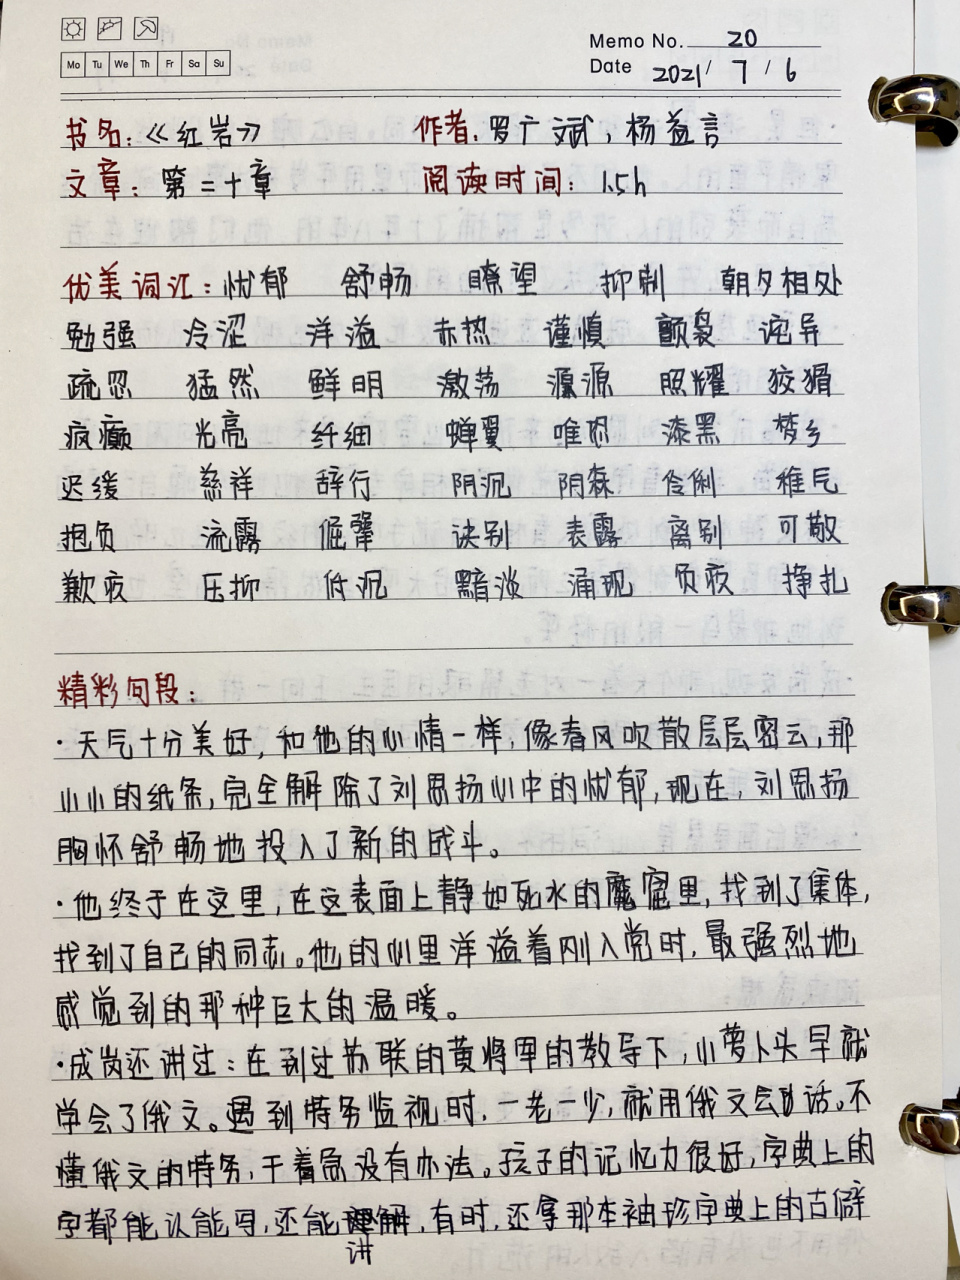 Memo No. 20
Mo Tu We Th Fr Sa Su
Date 2021 / 7 / 6
书名:《红岩》 作者:罗广斌,杨益言
文章:第二十章 阅读时间:1.5h
优美词汇:忧郁 舒畅 瞭望 抑制 朝夕相处
勉强 冷涩 洋溢 赤热 谨慎 颤袅 诧异
疏忽 猛然 鲜明 激荡 源 照耀 狡猾
疯癫 光亮 纤细 蝉翼 唯恐 漆黑 梦乡
迟缓 慈祥 辞行 阴沉 阴森 伶俐 稚气
抱负 流露 倔肇 诀别 表露 离别 可敬
歉疚 压抑 低沉 黯淡 涌现 负疚 挣扎
精彩句段:
·天气十分美好,和他的心情一样,像春风吹散层层密云,那
小小的纸条,完全解除了刘思扬心中的忧郁,现在,刘思扬
胸怀舒畅地投入了新的战斗。
·他终于在这里,在这表面上静如死水的魔窟里,找到了集体,
找到了自己的同志。他的心里洋溢着刚入党时,最强烈地
感觉到的那种巨大的温暖。
·成岗还讲过:在到过苏联的黄将军的教导下,小萝卜头早就
学会了俄文。遇到特务监视时,一老一少,就用俄文会话。不
懂俄文的特务,干着急没有办法。孩子的记忆力很好,字典上的
字都能认能写,还能解,有时,还拿那本袖珍字典上的古僻
讲